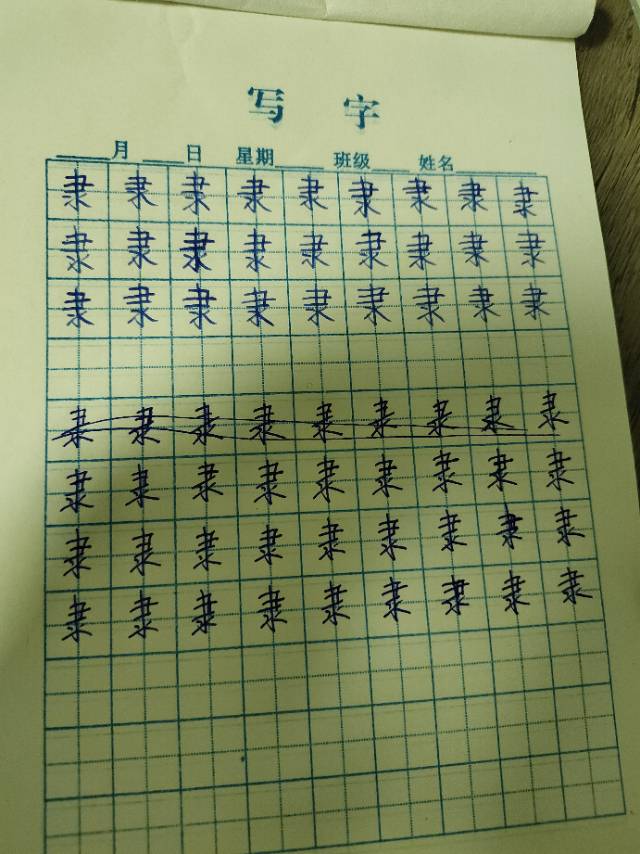 写 字
____月____日 星期____ 班级____ 姓名________
隶 隶 隶 隶 隶 隶 隶 隶 隶
隶 隶 隶 隶 隶 隶 隶 隶 隶
隶 隶 隶 隶 隶 隶 隶 隶 隶
隶 隶 隶 隶 隶 隶 隶 隶 隶
隶 隶 隶 隶 隶 隶 隶 隶 隶
隶 隶 隶 隶 隶 隶 隶 隶 隶
隶 隶 隶 隶 隶 隶 隶 隶 隶